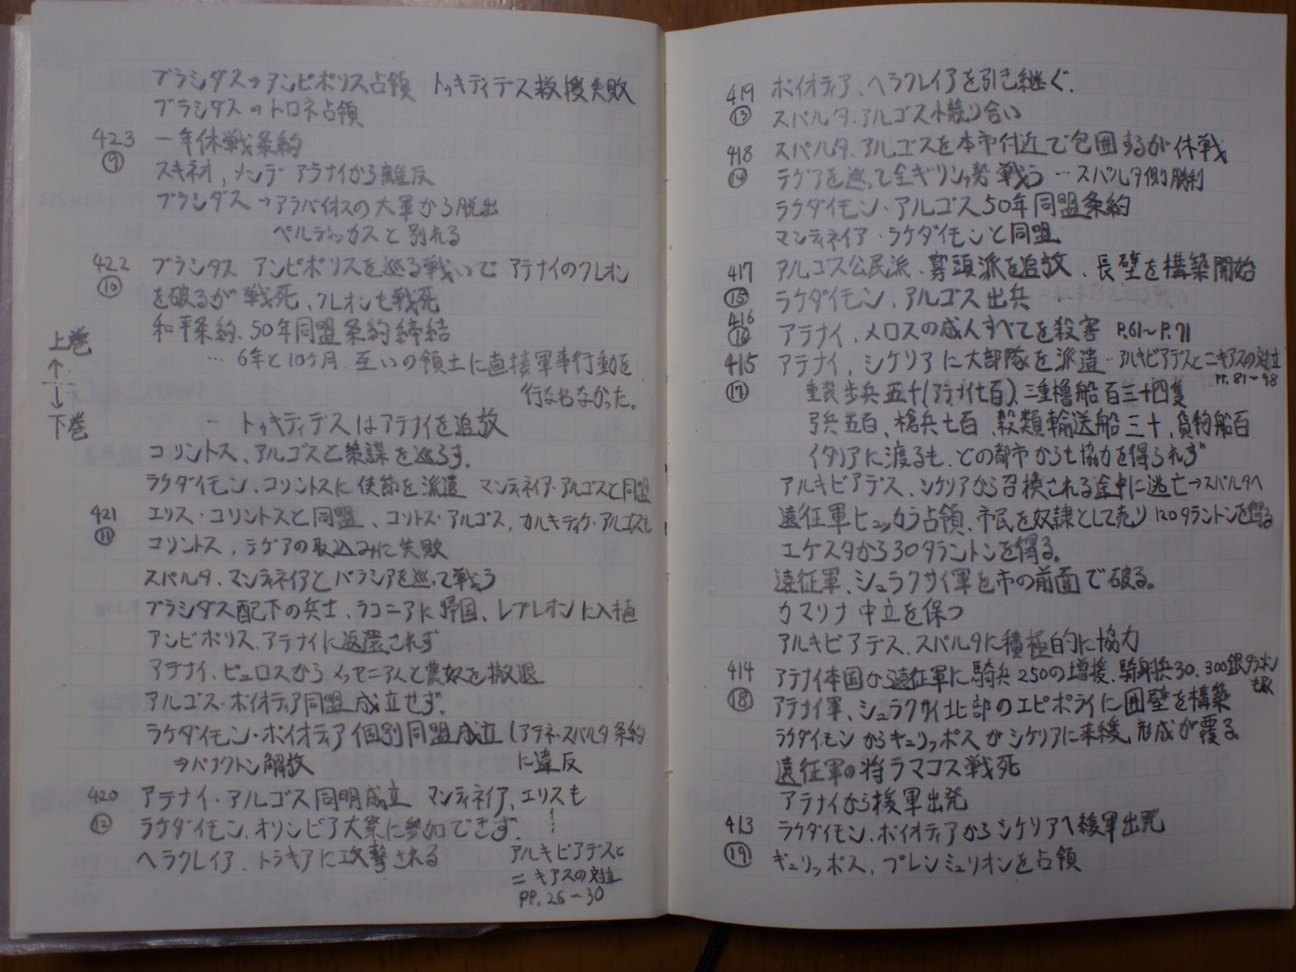 ブラシダス→アンピポリス占領 トゥキティデス救援失敗
ブラシダス→トロネ占領
423 一年休戦条約
⑨ スキネオ、メンデ アテナイから離反
ブラシダス→アラバイオスの大軍から脱出
ペルディッカスと別れる
422 ブラシダス アンピポリスを巡る戦いで アテナイのクレオン
⑩ を破るが戦死、クレオンも戦死
和平条約、50年同盟条約締結
… 6年と10ヶ月 互いの領土に直接軍事行動を
行なわなかった。
上巻
↑
↓
下巻
− トゥキティデスはアテナイを追放
コリントス、アルゴスと策謀を巡らす。
ラケダイモン、コリントスに使節を派遣 マンティネイア・アルゴスと同盟
421 エリス・コリントスと同盟、コリントス・アルゴス、カルキティケ・アルゴスも
⑪ コリントス、テゲアの取込みに失敗
スパルタ、マンティネイアとパラシアを巡って戦う
ブラシダス配下の兵士、ラコニアに帰国、レプレオンに入植
アンピポリス、アテナイに返還されず
アテナイ、ピュロスからメッセニア人と農奴を撤退
アルゴス・ボイオティア同盟成立せず。
ラケダイモン・ボイオティア個別同盟成立(アテネ・スパルタ条約
⇒パナクトン解放 に違反
420 アテナイ・アルゴス同明成立 マンティネイア、エリスも
⑫ ラケダイモン、オリンピア大祭に参加できず.
ヘラクレイア、トラキアに攻撃される
アルキビアデスと
ニキアスの対立
PP.26〜30
419 ボイオティア、ヘラクレイアを引き継ぐ.
⑬ スパルタ・アルゴス小競り合い
418 スパルタ、アルゴスを本市付近で包囲するが休戦
⑭ テゲアを巡って全ギリシャ勢戦う … スパルタ側勝利
ラケダイモン・アルゴス50年同盟条約
マンティネイア・ラケダイモンと同盟
417 アルゴス公民派、寡頭派を追放、長壁を構築開始
⑮ ラケダイモン、アルゴス出兵
416
⑯ アテナイ、メロスの成人すべてを殺害 P.61〜P.71
415 アテナイ、シケリアに大部隊を派遣 … アルキビアデスとニキアスの対立
PP.81〜98
⑰ 重装歩兵五千(アテナイ七百)、三重櫓船百三十四隻
弓兵五百、槍兵七百、穀類輸送船三十、貨物船百
イタリアに渡るも、どの都市からも協力を得られず
アルキビアデス、シケリアから召喚される途中に逃亡→スパルタへ
遠征軍ヒュッカラ占領、市民を奴隷として売り120タラントンを得る
エゲスタから30タラントンを得る。
遠征軍、シュラクサイ軍を市の前面で破る。
カマリナ中立を保つ
アルキビアデス、スパルタに積極的に協力
414 アテナイ本国から遠征軍に騎兵250の増援、騎射兵30、300銀タラントン
も
⑱ アテナイ軍、シュラクサイ北部のエピポライに囲壁を構築
ラケダイモンからギュリッポスがシケリアに来援、形成が覆る
遠征軍の将ラマコス戦死
アテナイから援軍出発
413 ラケダイモン、ボイオティアからシケリアへ援軍出発
⑲ ギュリッポス、プレンミュリオンを占領